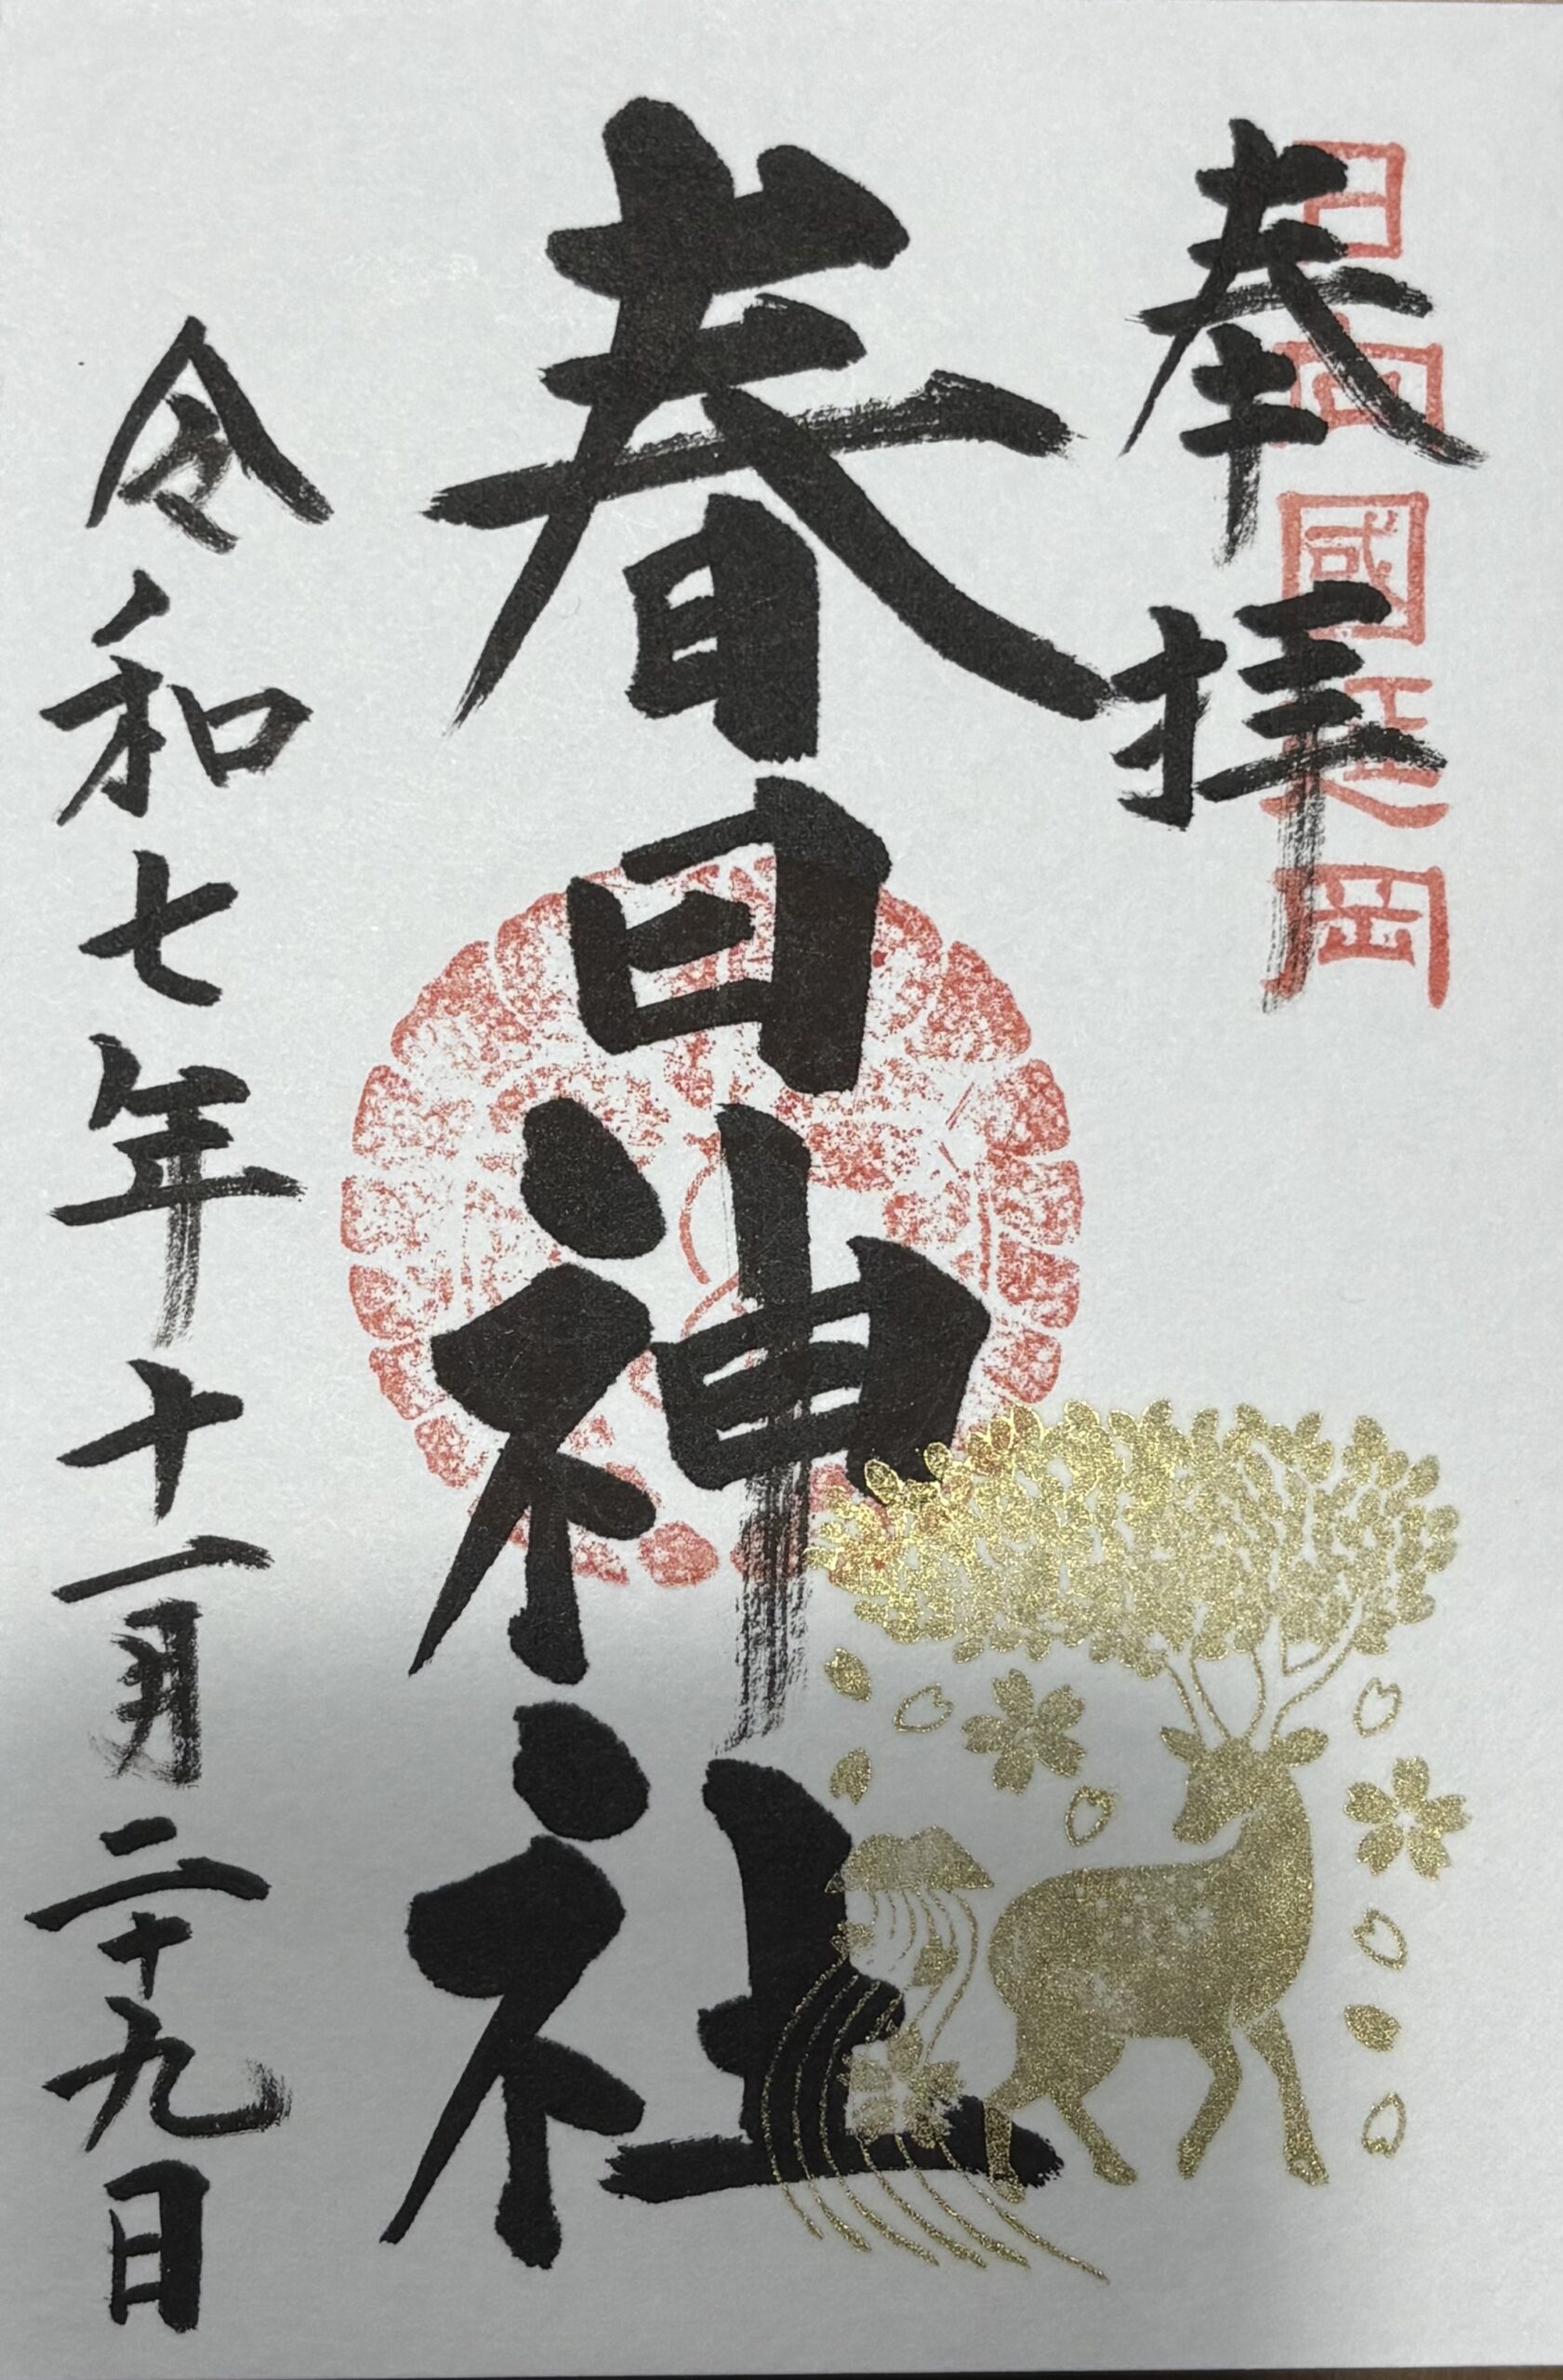 日向國延岡
奉拝
春日神社
令和七年十一月二十九日